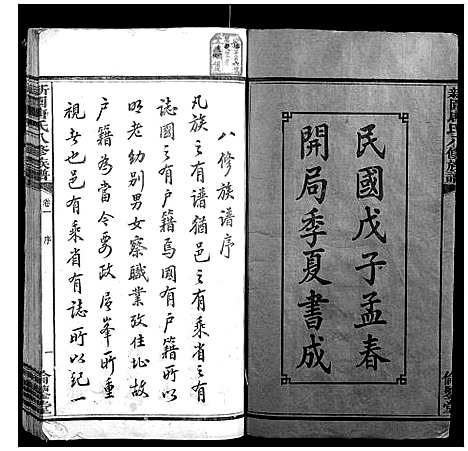 民國戊子孟春
開局季夏書成
八修族譜序
凡族之有谱猶邑之有乘省之有
誌國之有户籍焉國有户籍所以
明老幼别男女察職業攷住址故
户籍為當今要政
所重
視者也邑有乘省有誌所以纪一
氏八修族譜
卷一
序
一